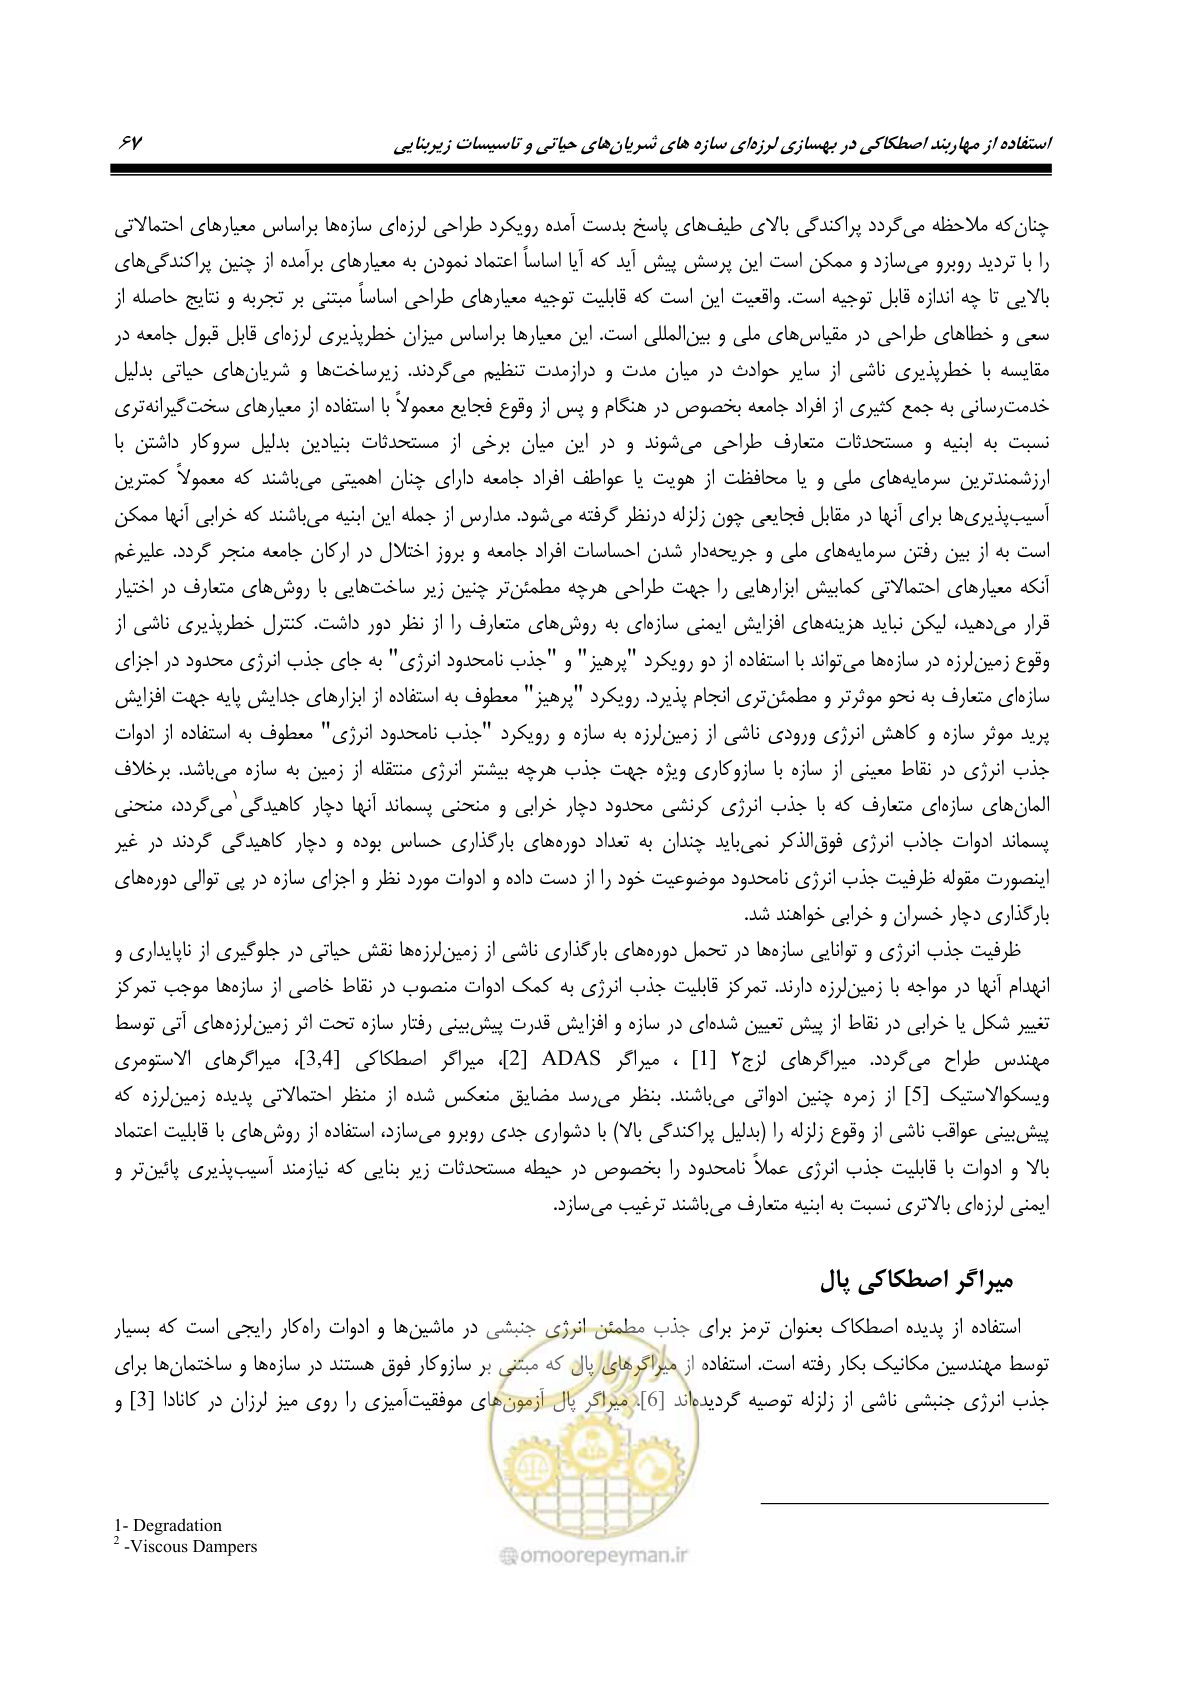 استفاده از مهاربند اصطکاکی در بهسازی لرزه‌ای سازه های شریان‌های حیاتی و تاسیسات زیربنایی ۶۷
چنان‌که ملاحظه می‌گردد پراکندگی بالای طیف‌های پاسخ بدست آمده رویکرد طراحی لرزه‌ای سازه‌ها براساس معیارهای احتمالاتی
را با تردید روبرو می‌سازد و ممکن است این پرسش پیش آید که آیا اساساً اعتماد نمودن به معیارهای برآمده از چنین پراکندگی‌های
بالایی تا چه اندازه قابل توجیه است. واقعیت این است که قابلیت توجیه معیارهای طراحی اساساً مبتنی بر تجربه و نتایج حاصله از
سعی و خطاهای طراحی در مقیاس‌های ملی و بین‌المللی است. این معیارها براساس میزان خطرپذیری لرزه‌ای قابل قبول جامعه در
مقایسه با خطرپذیری ناشی از سایر حوادث در میان مدت و درازمدت تنظیم می‌گردند. زیرساخت‌ها و شریان‌های حیاتی بدلیل
خدمت‌رسانی به جمع کثیری از افراد جامعه بخصوص در هنگام و پس از وقوع فجایع معمولاً با استفاده از معیارهای سخت‌گیرانه‌تری
نسبت به ابنیه و مستحدثات متعارف طراحی می‌شوند و در این میان برخی از مستحدثات بنیادین بدلیل سروکار داشتن با
ارزشمندترین سرمایه‌های ملی و یا محافظت از هویت یا عواطف افراد جامعه دارای چنان اهمیتی می‌باشند که معمولاً کمترین
آسیب‌پذیری‌ها برای آنها در مقابل فجایعی چون زلزله درنظر گرفته می‌شود. مدارس از جمله این ابنیه می‌باشند که خرابی آنها ممکن
است به از بین رفتن سرمایه‌های ملی و جریحه‌دار شدن احساسات افراد جامعه و بروز اختلال در ارکان جامعه منجر گردد. علیرغم
آنکه معیارهای احتمالاتی کمابیش ابزارهایی را جهت طراحی هرچه مطمئن‌تر چنین زیر ساخت‌هایی با روش‌های متعارف در اختیار
قرار می‌دهید، لیکن نباید هزینه‌های افزایش ایمنی سازه‌ای به روش‌های متعارف را از نظر دور داشت. کنترل خطرپذیری ناشی از
وقوع زمین‌لرزه در سازه‌ها می‌تواند با استفاده از دو رویکرد "پرهیز" و "جذب نامحدود انرژی" به جای جذب انرژی محدود در اجزای
سازه‌ای متعارف به نحو موثرتر و مطمئن‌تری انجام پذیرد. رویکرد "پرهیز" معطوف به استفاده از ابزارهای جدایش پایه جهت افزایش
پرید موثر سازه و کاهش انرژی ورودی ناشی از زمین‌لرزه به سازه و رویکرد "جذب نامحدود انرژی" معطوف به استفاده از ادوات
جذب انرژی در نقاط معینی از سازه با سازوکاری ویژه جهت جذب هرچه بیشتر انرژی منتقله از زمین به سازه می‌باشد. برخلاف
المان‌های سازه‌ای متعارف که با جذب انرژی کرنشی محدود دچار خرابی و منحنی پسماند آنها دچار کاهیدگی۱می‌گردد، منحنی
پسماند ادوات جاذب انرژی فوق‌الذکر نمی‌باید چندان به تعداد دوره‌های بارگذاری حساس بوده و دچار کاهیدگی گردند در غیر
اینصورت مقوله ظرفیت جذب انرژی نامحدود موضوعیت خود را از دست داده و ادوات مورد نظر و اجزای سازه در پی توالی دوره‌های
بارگذاری دچار خسران و خرابی خواهند شد.
ظرفیت جذب انرژی و توانایی سازه‌ها در تحمل دوره‌های بارگذاری ناشی از زمین‌لرزه‌ها نقش حیاتی در جلوگیری از ناپایداری و
انهدام آنها در مواجه با زمین‌لرزه دارند. تمرکز قابلیت جذب انرژی به کمک ادوات منصوب در نقاط خاصی از سازه‌ها موجب تمرکز
تغییر شکل یا خرابی در نقاط از پیش تعیین شده‌ای در سازه و افزایش قدرت پیش‌بینی رفتار سازه تحت اثر زمین‌لرزه‌های آتی توسط
مهندس طراح می‌گردد. میراگرهای لزج۲ [1] ، میراگر ADAS [2]، میراگر اصطکاکی [3,4]، میراگرهای الاستومری
ویسکوالاستیک [5] از زمره چنین ادواتی می‌باشند. بنظر می‌رسد مضایق منعکس شده از منظر احتمالاتی پدیده زمین‌لرزه که
پیش‌بینی عواقب ناشی از وقوع زلزله را (بدلیل پراکندگی بالا) با دشواری جدی روبرو می‌سازد، استفاده از روش‌های با قابلیت اعتماد
بالا و ادوات با قابلیت جذب انرژی عملاً نامحدود را بخصوص در حیطه مستحدثات زیر بنایی که نیازمند آسیب‌پذیری پائین‌تر و
ایمنی لرزه‌ای بالاتری نسبت به ابنیه متعارف می‌باشند ترغیب می‌سازد.
میراگر اصطکاکی پال
استفاده از پدیده اصطکاک بعنوان ترمز برای جذب مطمئن انرژی جنبشی در ماشین‌ها و ادوات راه‌کار رایجی است که بسیار
توسط مهندسین مکانیک بکار رفته است. استفاده از میراگرهای پال که مبتنی بر سازوکار فوق هستند در سازه‌ها و ساختمان‌ها برای
جذب انرژی جنبشی ناشی از زلزله توصیه گردیده‌اند [6]. میراگر پال آزمون‌های موفقیت‌آمیزی را روی میز لرزان در کانادا [3] و
1- Degradation
2 -Viscous Dampers
@omoorepeyman.ir